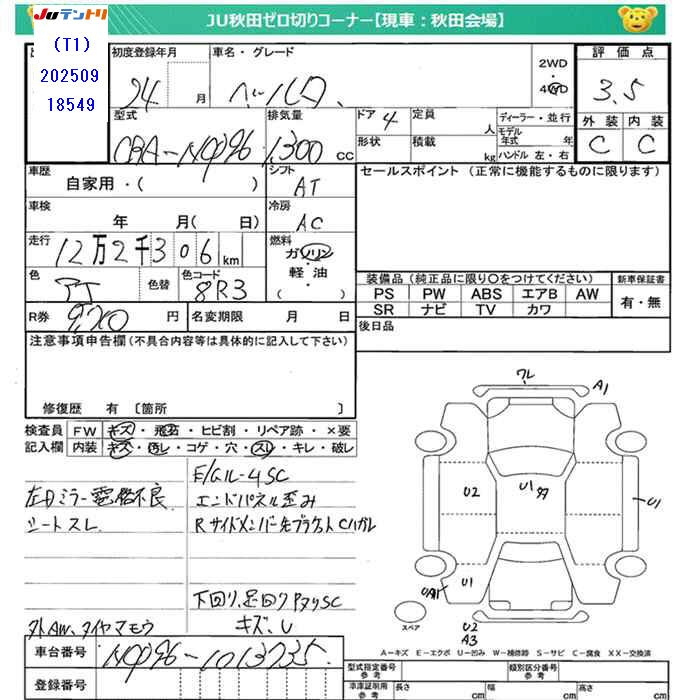 JUテントリ JU秋田ゼロ切りコーナー【現車：秋田会場】
(T1)
202509
18549
初度登録年月 車名・グレード 2WD 4WD 評価点
24 月 ベルタ 3.5
型式 排気量 ドア 4 定員 人 ディーラー・並行 外装 内装
CBA-NCP96 1300 cc 形状 積載 kg モデル年式 年 ハンドル 左・右 C C
車歴 シフト セールスポイント (正常に機能するものに限ります)
自家用・( ) AT
車検 冷房
年 月( 日) AC
走行 燃料
12万2千306km ガソリン
色 色替 色コード 軽油
8R3 ・( )
装備品 (純正品に限り○をつけてください) 新車保証書
PS PW ABS エアB AW 有・無
SR ナビ TV カワ
R券 円 名変期限 月 日 後日品
注意事項申告欄 (不具合内容等は具体的に記入して下さい)
修復歴 有 〔箇所 〕
検査員 FW キズ・飛石・ヒビ割・リペア跡・×要
記入欄 内装 キズ・汚レ・コゲ・穴・スレ・キレ・破レ
E/Gルーム SC
左Dミラー電格不良 エンドパネル歪み
シートスレ Rサイドメンバー先ブラケットCハガレ
下回り、足回りPヌリSC
外AW、タイヤマモウ キズ、U
ワレ A1
U2 U1 U1
U1
スペア U2
A3
A－キズ E－エクボ U－凹み W－補修跡 S－サビ C－腐食 XX－交換済
車台番号 NCP96-1013735
登録番号
型式指定番号 参考 類別区分番号 参考
車庫証明用 参考 長さ cm 幅 cm 高さ cm